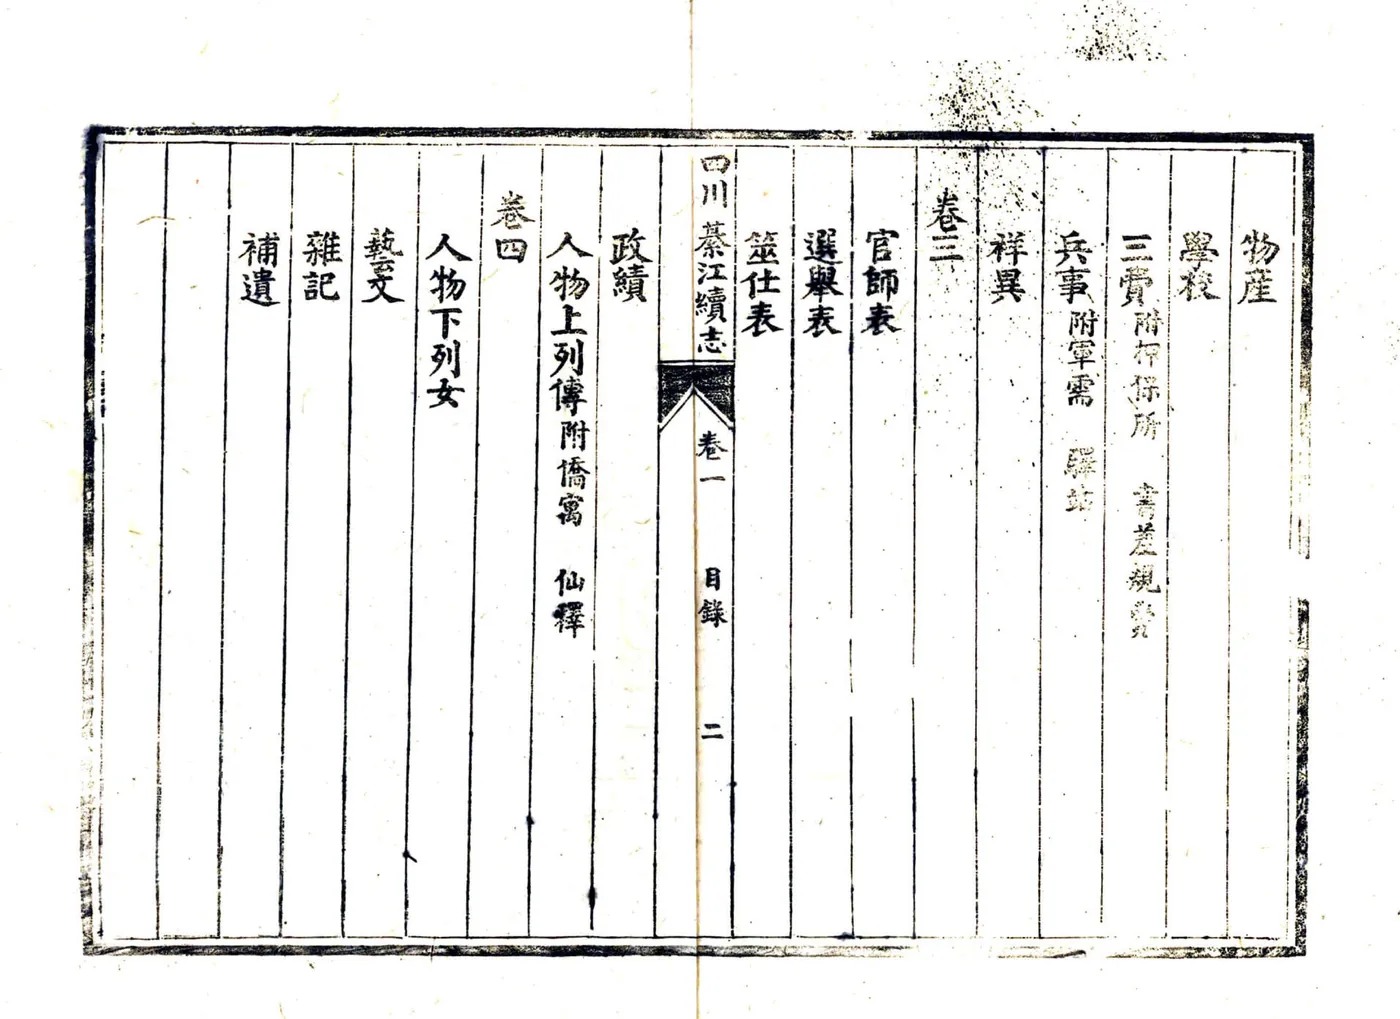 物產
學校
三費附押保所　書差規費
兵事附軍需　驛站
祥異
卷三
官師表
選舉表
筮仕表
四川綦江續志　卷一　目錄　二
政績
人物上列傳附僑寓　仙釋
卷四
人物下列女
藝文
雜記
補遺